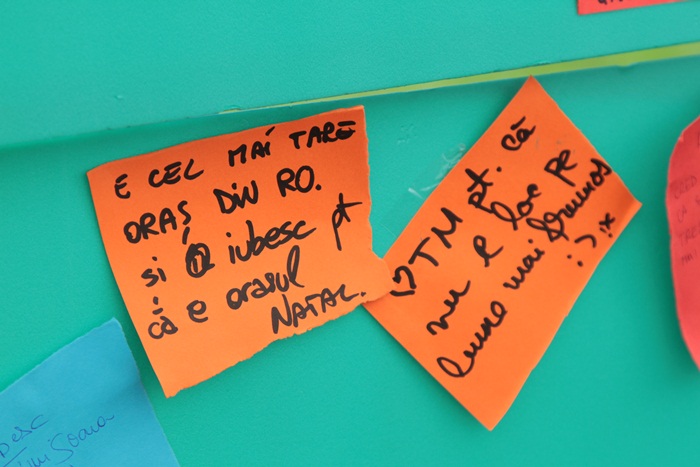 E CEL MAI TARE
ORAȘ DIN RO.
și îl iubesc pt
că e orașul
NATAL.
♡TM pt. că
nu e loc pe
lume mai frumos
:) :*
Timișoara